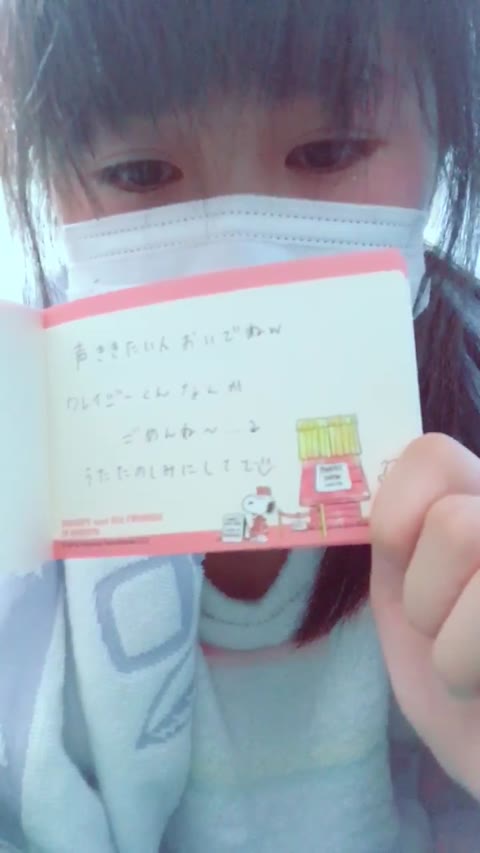 声ききたい人 おいでねw
クレイジーくん なんか
ごめんね〜...
うたたのしみにしてて
SNOOPY and His FRIENDS